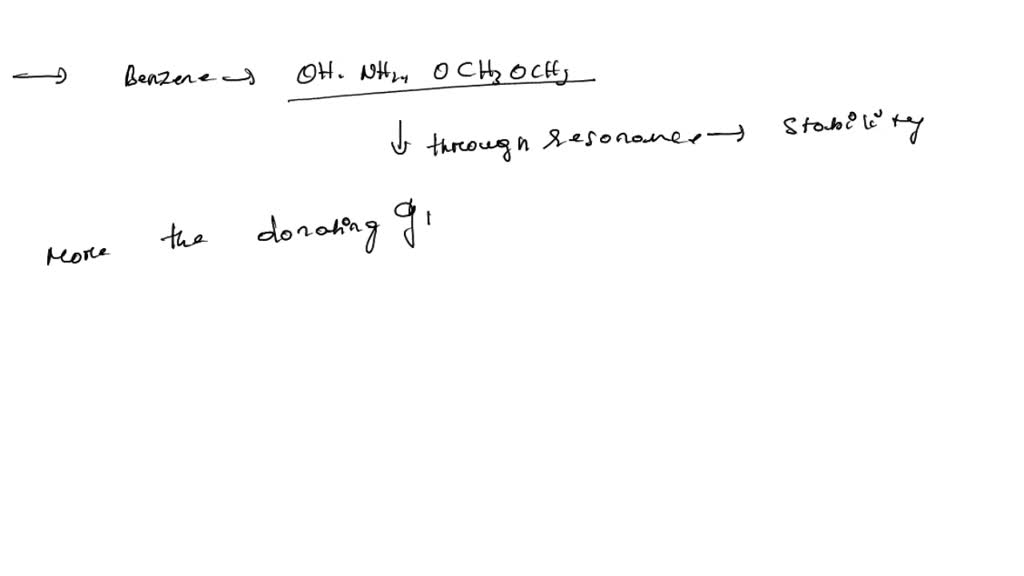 Benzene → OH. NH2, OCH3 OCH3
↓ through resonance → Stability
More the donating g